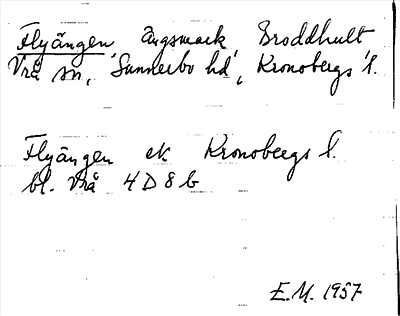 Flyängen, ängsmark, Broddhult
Vrå sn, Sunnerbo hd, Kronobergs l.
Flyängen ek Kronobergs l.
bl. Vrå 4D8b
E.M. 1957